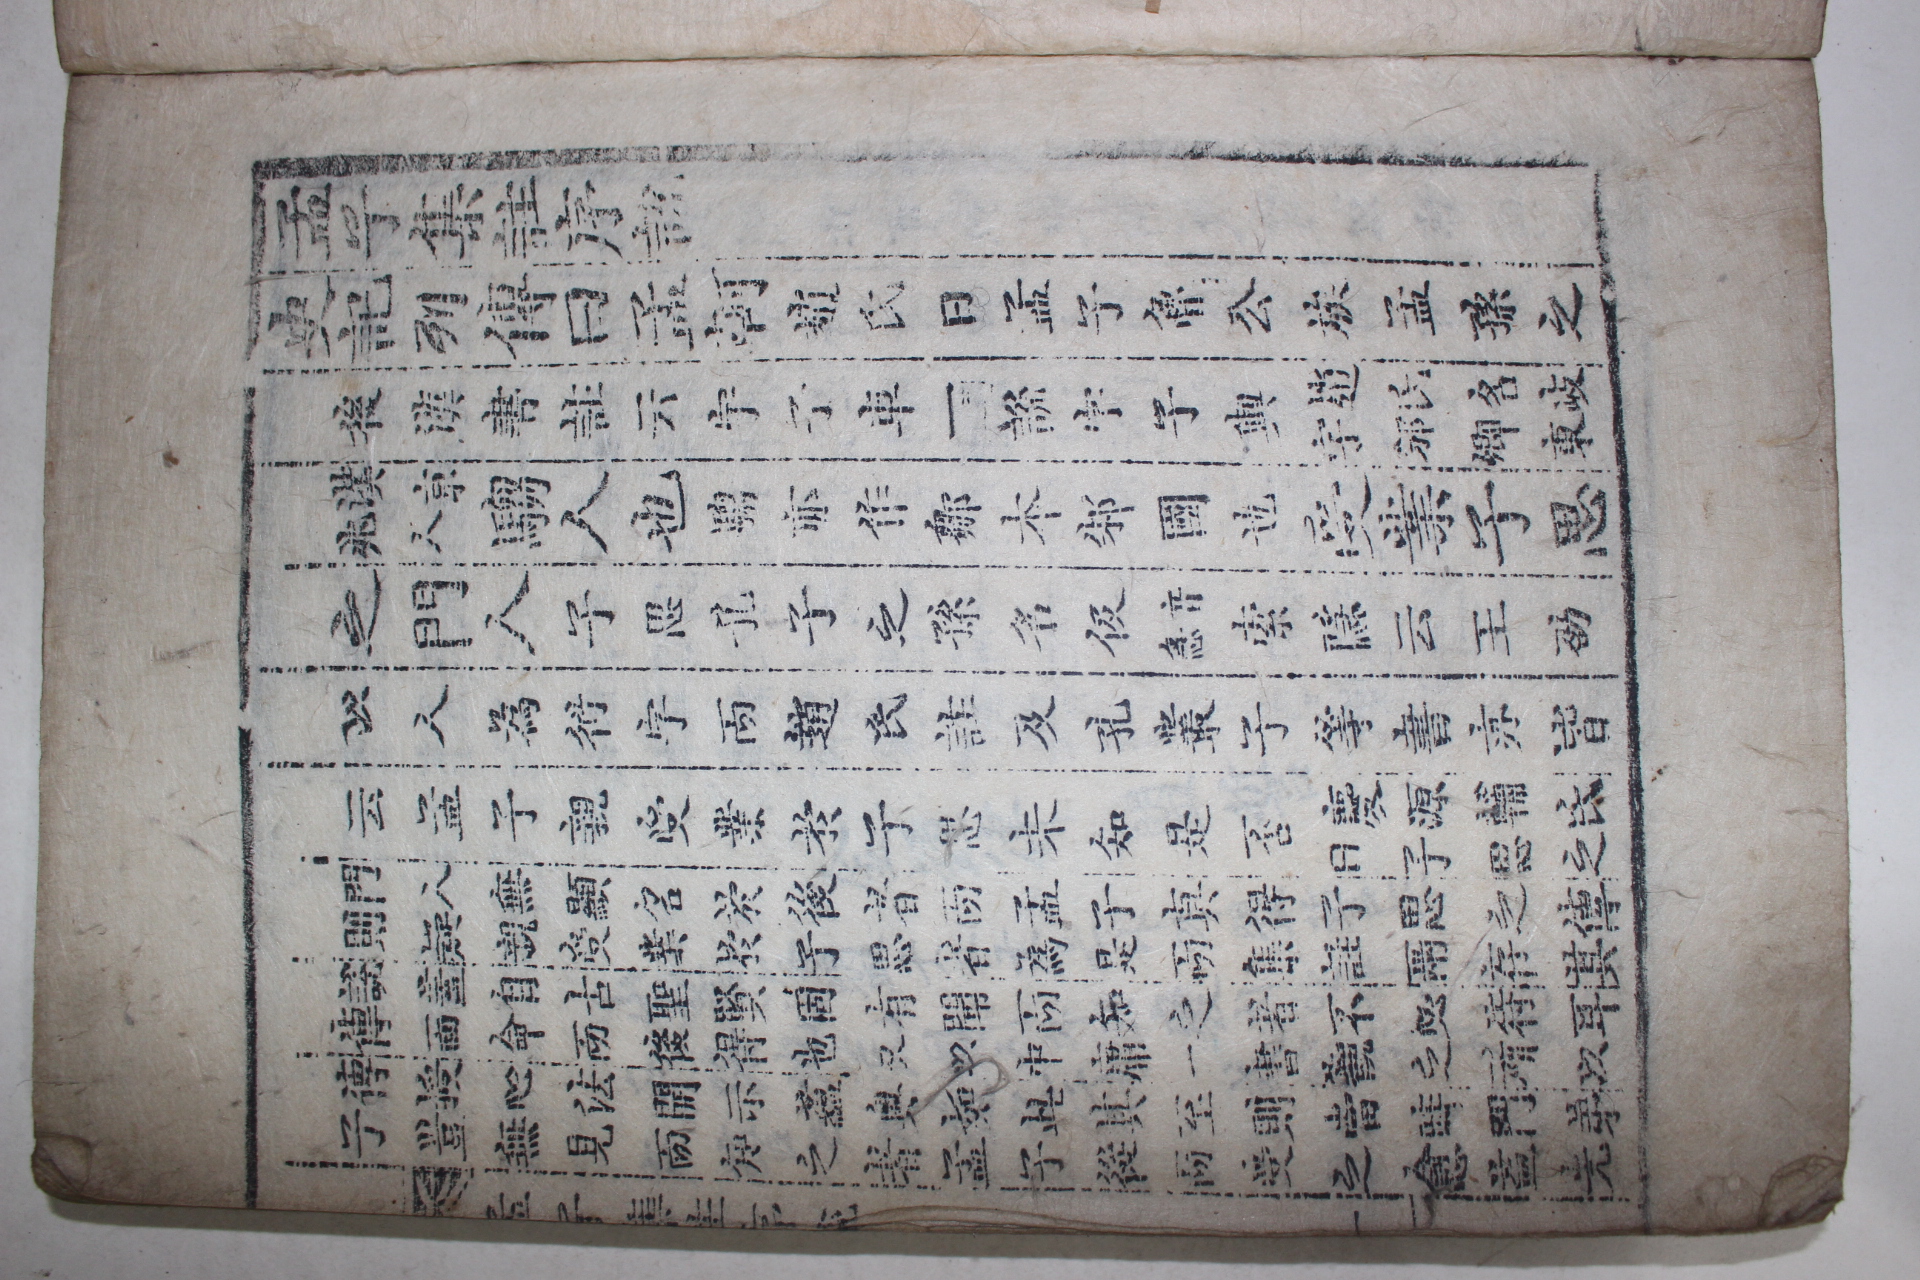 孟子集註序說
史記列傳曰孟軻趙氏曰孟子魯公族孟孫之
後漢書註云字子車一說字子輿趙氏名岐
字邠卿東
漢京
兆人騶人也騶亦作鄒本邾國也受業子思
之門人子思孔子之孫名伋音急索隱云王劭
以人為衍字而趙氏註及孔叢子等書亦皆
云孟子親受業於子思未知是否慶源輔氏
曰子思之
門人無顯名於後者而孟子真得子思之傳
則疑親受業於子思者為是而集註兩存其
說蓋自古聖賢固有聞而知之者不必待耳
傳面命而後得也又以中庸一書觀之所以
傳授心法開示蘊奧如此其至則當時門弟
子豈無見而知之者孟子從而受之愈益光
孟子集註序說 一